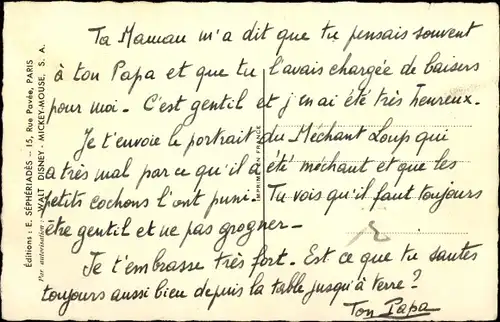 Ta Maman m'a dit que tu pensais souvent
à ton Papa et que tu l'avais chargée de baisers
pour moi. C'est gentil et j'en ai été très heureux.
Je t'envoie le portrait du Méchant Loup qui
a très mal par ce qu'il a été méchant et que les
petits cochons l'ont puni. Tu vois qu'il faut toujours
être gentil et ne pas grogner.
Je t'embrasse très fort. Est ce que tu sautes
toujours aussi bien depuis la table jusqu'à terre?
Ton Papa
Éditions: E. SÉPHÉRIADÈS - 15, Rue Pavée, PARIS
Par autorisation: WALT DISNEY - MICKEY-MOUSE. S. A.
IMPRIMÉ EN FRANCE